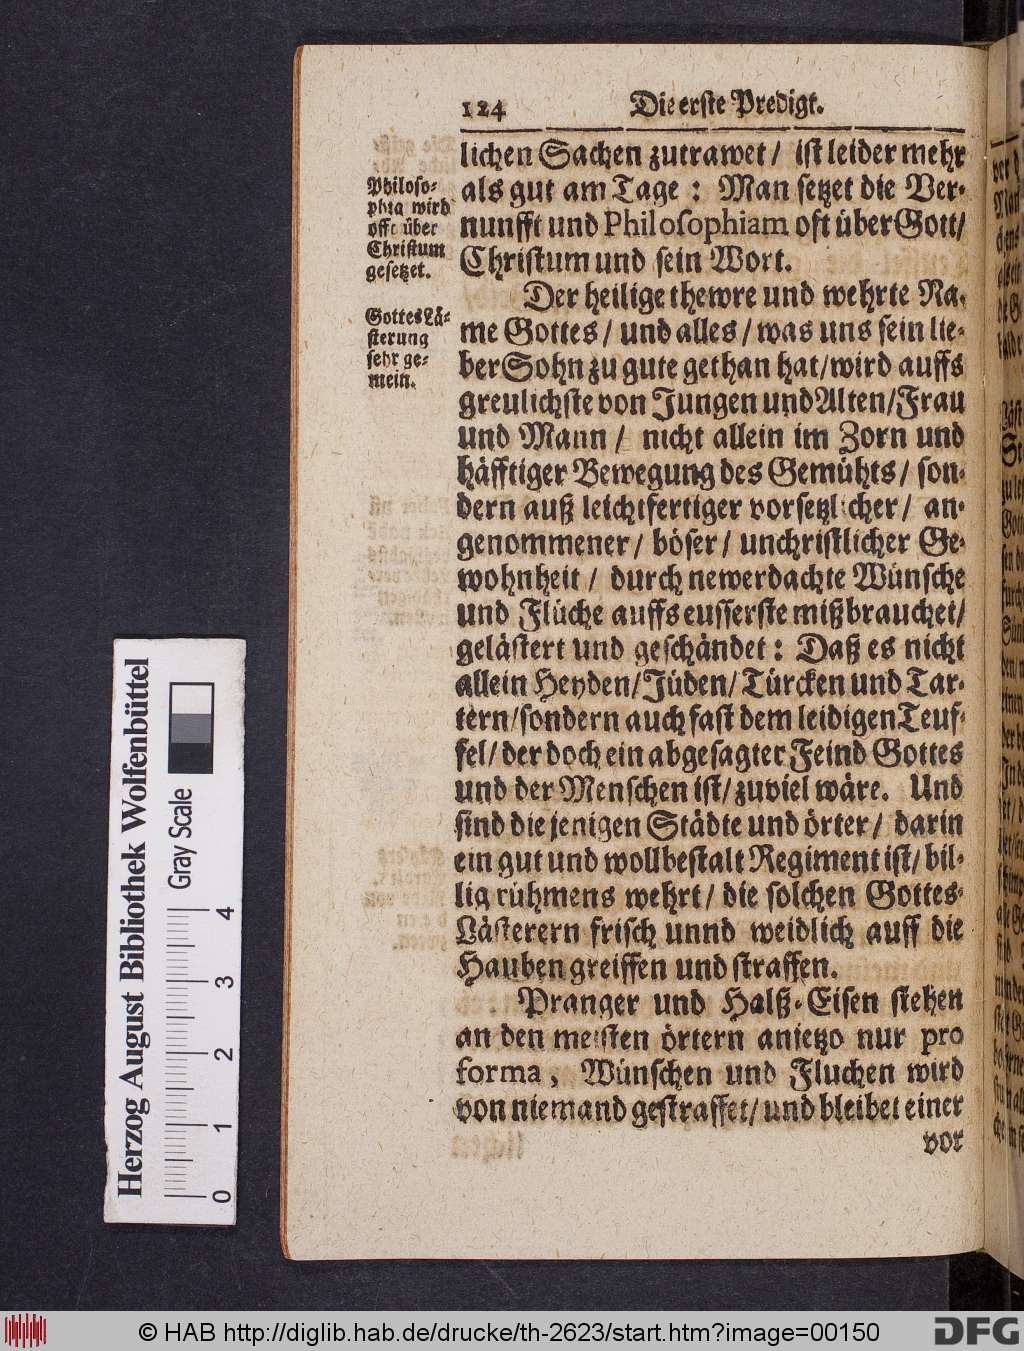 124 Die erste Predigt.
lichen Sachen zutrawet / ist leider mehr
als gut am Tage : Man setzet die Ver-
nunfft und Philosophiam oft über Gott/
Christum und sein Wort.
Philoso-
phia wird
offt über
Christum
gesetzet.
Der heilige thewre und wehrte Na-
me Gottes / und alles / was uns sein lie-
ber Sohn zu gute gethan hat/wird auffs
greulichste von Jungen und Alten/Frau
und Mann / nicht allein im Zorn und
häfftiger Bewegung des Gemühts / son-
dern auß leichtfertiger vorsetzlicher / an-
genommener / böser / unchristlicher Ge-
wohnheit / durch newerdachte Wünsche
und Flüche auffs eusserste mißbrauchet/
gelästert und geschändet : Daß es nicht
allein Heyden/Jüden/Türcken und Tar-
tern/sondern auch fast dem leidigen Teuf-
fel/ der doch ein abgesagter Feind Gottes
und der Menschen ist/ zuviel wäre. Und
sind die jenigen Städte und örter / darin
ein gut und wollbestalt Regiment ist/ bil-
lig rühmens wehrt / die solchen Gottes-
Lästerern frisch unnd weidlich auff die
Hauben greiffen und straffen.
Gottes Lä-
sterung
sehr ge-
mein.
Pranger und Halß-Eisen stehen
an den meisten örtern anietzo nur pro
forma, Wünschen und Fluchen wird
von niemand gestraffet/ und bleibet einer
vor
Herzog August Bibliothek Wolfenbüttel
Gray Scale
0 1 2 3 4
© HAB http://diglib.hab.de/drucke/th-2623/start.htm?image=00150
DFG